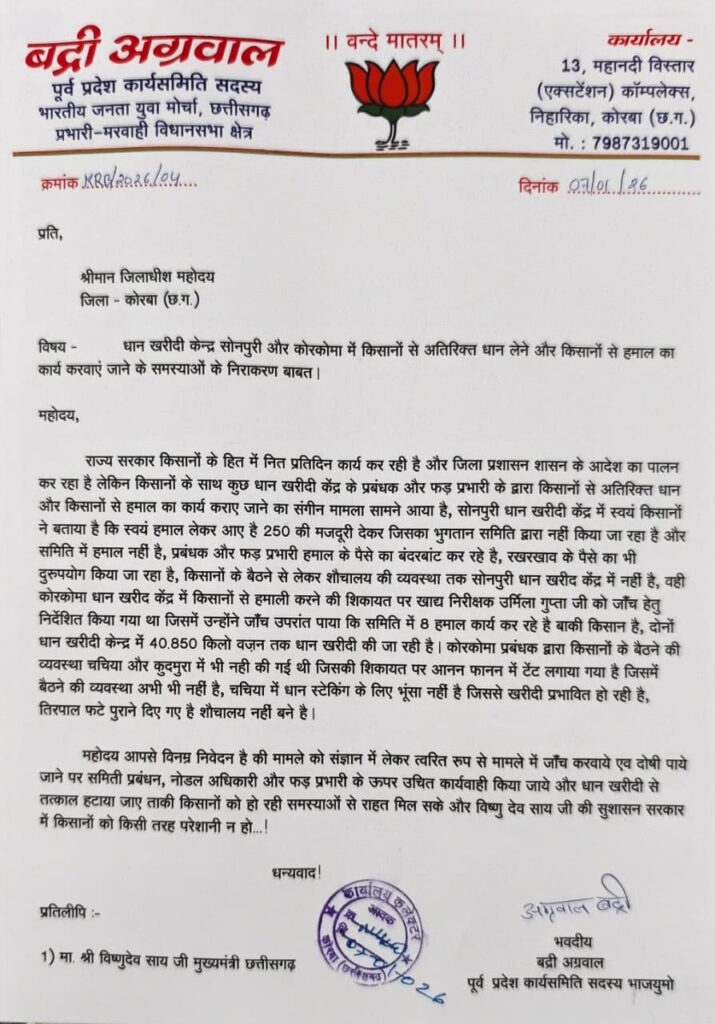 बद्री अग्रवाल
पूर्व प्रदेश कार्यसमिति सदस्य
भारतीय जनता युवा मोर्चा, छत्तीसगढ़
प्रभारी-मरवाही विधानसभा क्षेत्र
।। वन्दे मातरम् ।।
कार्यालय -
13, महानदी विस्तार
(एक्सटेंशन) कॉम्पलेक्स,
निहारिका, कोरबा (छ.ग.)
मो. : 7987319001
क्रमांक KRB/2026/04
दिनांक 07/01/26
प्रति,
श्रीमान जिलाधीश महोदय
जिला - कोरबा (छ.ग.)
विषय - धान खरीदी केन्द्र सोनपुरी और कोरकोमा में किसानों से अतिरिक्त धान लेने और किसानों से हमाल का
कार्य करवाएं जाने के समस्याओं के निराकरण बाबत।
महोदय,
राज्य सरकार किसानों के हित में नित प्रतिदिन कार्य कर रही है और जिला प्रशासन शासन के आदेश का पालन
कर रहा है लेकिन किसानों के साथ कुछ धान खरीदी केंद्र के प्रबंधक और फड़ प्रभारी के द्वारा किसानों से अतिरिक्त धान
और किसानों से हमाल का कार्य कराए जाने का संगीन मामला सामने आया है, सोनपुरी धान खरीदी केंद्र में स्वयं किसानों
ने बताया है कि स्वयं हमाल लेकर आए है 250 की मजदूरी देकर जिसका भुगतान समिति द्वारा नहीं किया जा रहा है और
समिति में हमाल नहीं है, प्रबंधक और फड़ प्रभारी हमाल के पैसे का बंदरबांट कर रहे है, रखरखाव के पैसे का भी
दुरुपयोग किया जा रहा है, किसानों के बैठने से लेकर शौचालय की व्यवस्था तक सोनपुरी धान खरीद केंद्र में नहीं है, वही
कोरकोमा धान खरीद केंद्र में किसानों से हमाली करने की शिकायत पर खाद्य निरीक्षक उर्मिला गुप्ता जी को जाँच हेतु
निर्देशित किया गया था जिसमें उन्होंने जाँच उपरांत पाया कि समिति में 8 हमाल कार्य कर रहे है बाकी किसान है, दोनों
धान खरीदी केन्द्र में 40.850 किलो वज़न तक धान खरीदी की जा रही है। कोरकोमा प्रबंधक द्वारा किसानों के बैठने की
व्यवस्था चचिया और कुदमुरा में भी नही की गई थी जिसकी शिकायत पर आनन फानन में टेंट लगाया गया है जिसमें
बैठने की व्यवस्था अभी भी नहीं है, चचिया में धान स्टेकिंग के लिए भूंसा नहीं है जिससे खरीदी प्रभावित हो रही है,
तिरपाल फटे पुराने दिए गए है शौचालय नहीं बने है।
महोदय आपसे विनम्र निवेदन है की मामले को संज्ञान में लेकर त्वरित रुप से मामले में जाँच करवाये एव दोषी पाये
जाने पर समिती प्रबंधन, नोडल अधिकारी और फड़ प्रभारी के ऊपर उचित कार्यवाही किया जाये और धान खरीदी से
तत्काल हटाया जाए ताकी किसानों को हो रही समस्याओं से राहत मिल सके और विष्णु देव साय जी की सुशासन सरकार
में किसानों को किसी तरह परेशानी न हो...!
धन्यवाद!
प्रतिलीपि :-
1) मा. श्री विष्णुदेव साय जी मुख्यमंत्री छत्तीसगढ़
कार्यालय कलेक्टर
आवक
कोरबा (छत्तीसगढ़)
अग्रवाल बद्री
भवदीय
बद्री अग्रवाल
पूर्व प्रदेश कार्यसमिति सदस्य भाजयुमो